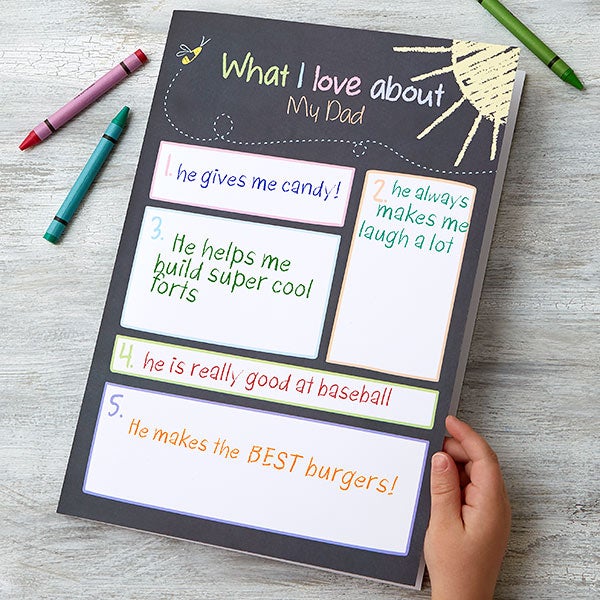 What I love about
My Dad
1. he gives me candy!
2. he always
makes me
laugh a lot
3. He helps me
build super cool
forts
4. he is really good at baseball
5. He makes the BEST burgers!